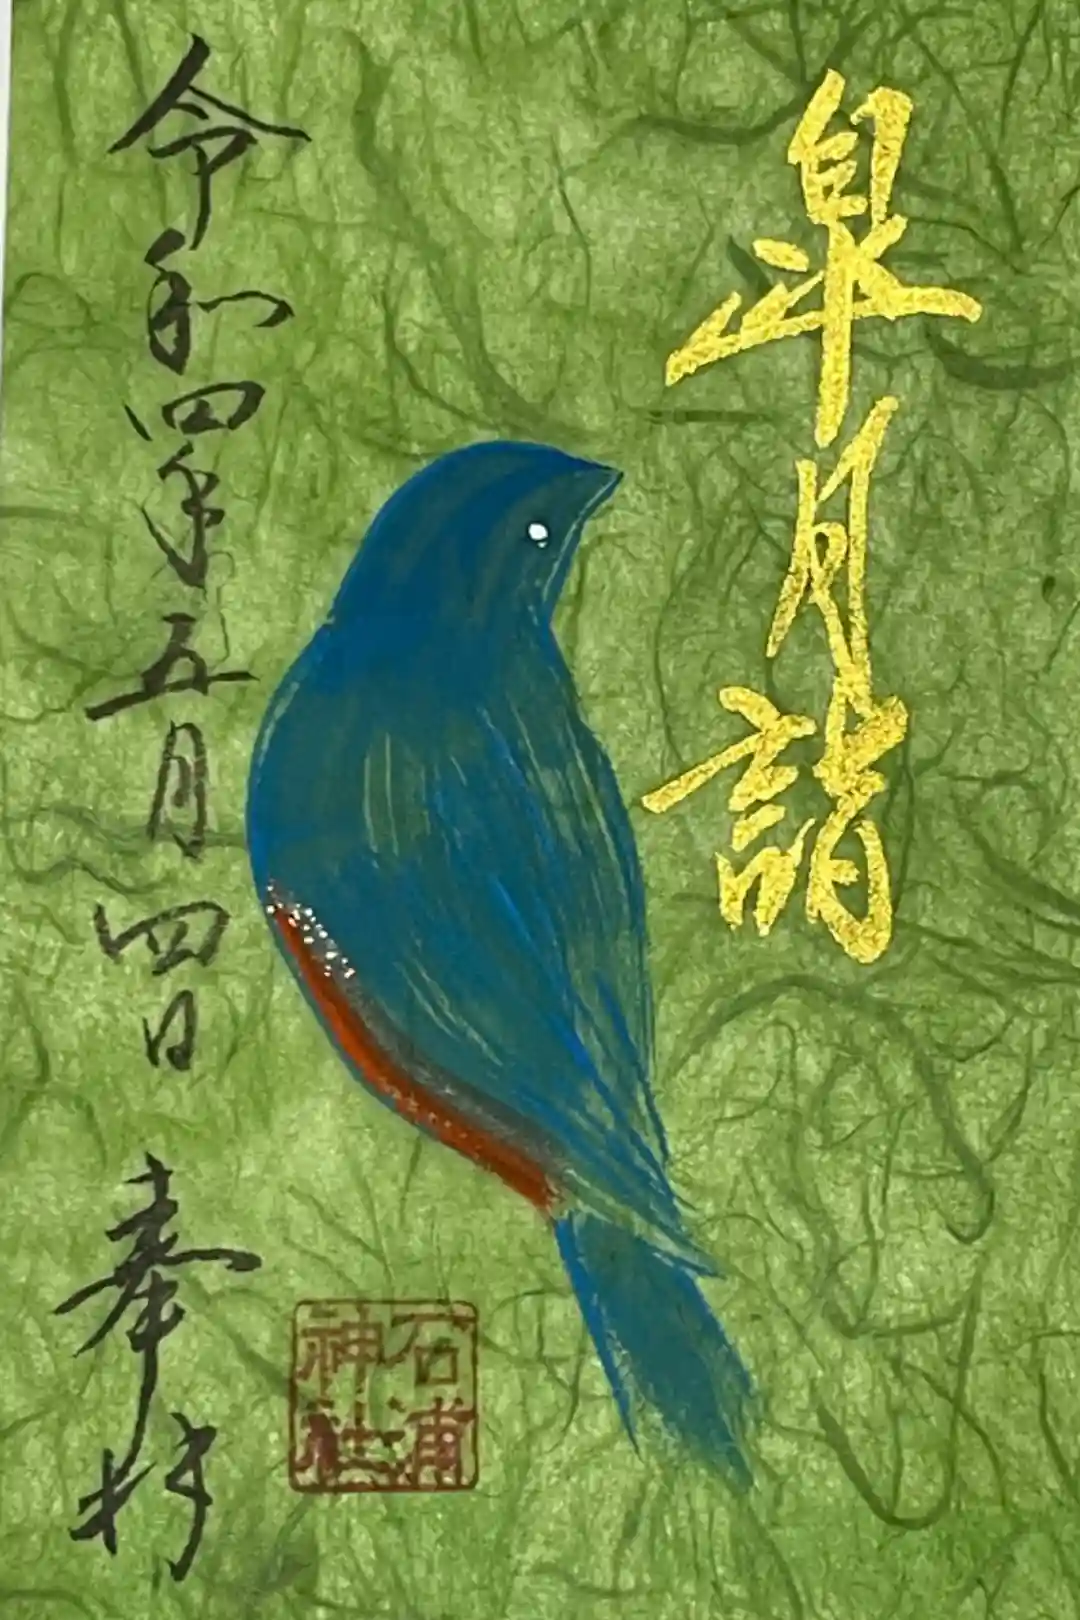 皐月詣
令和四年五月四日 奉拝
石浦神社